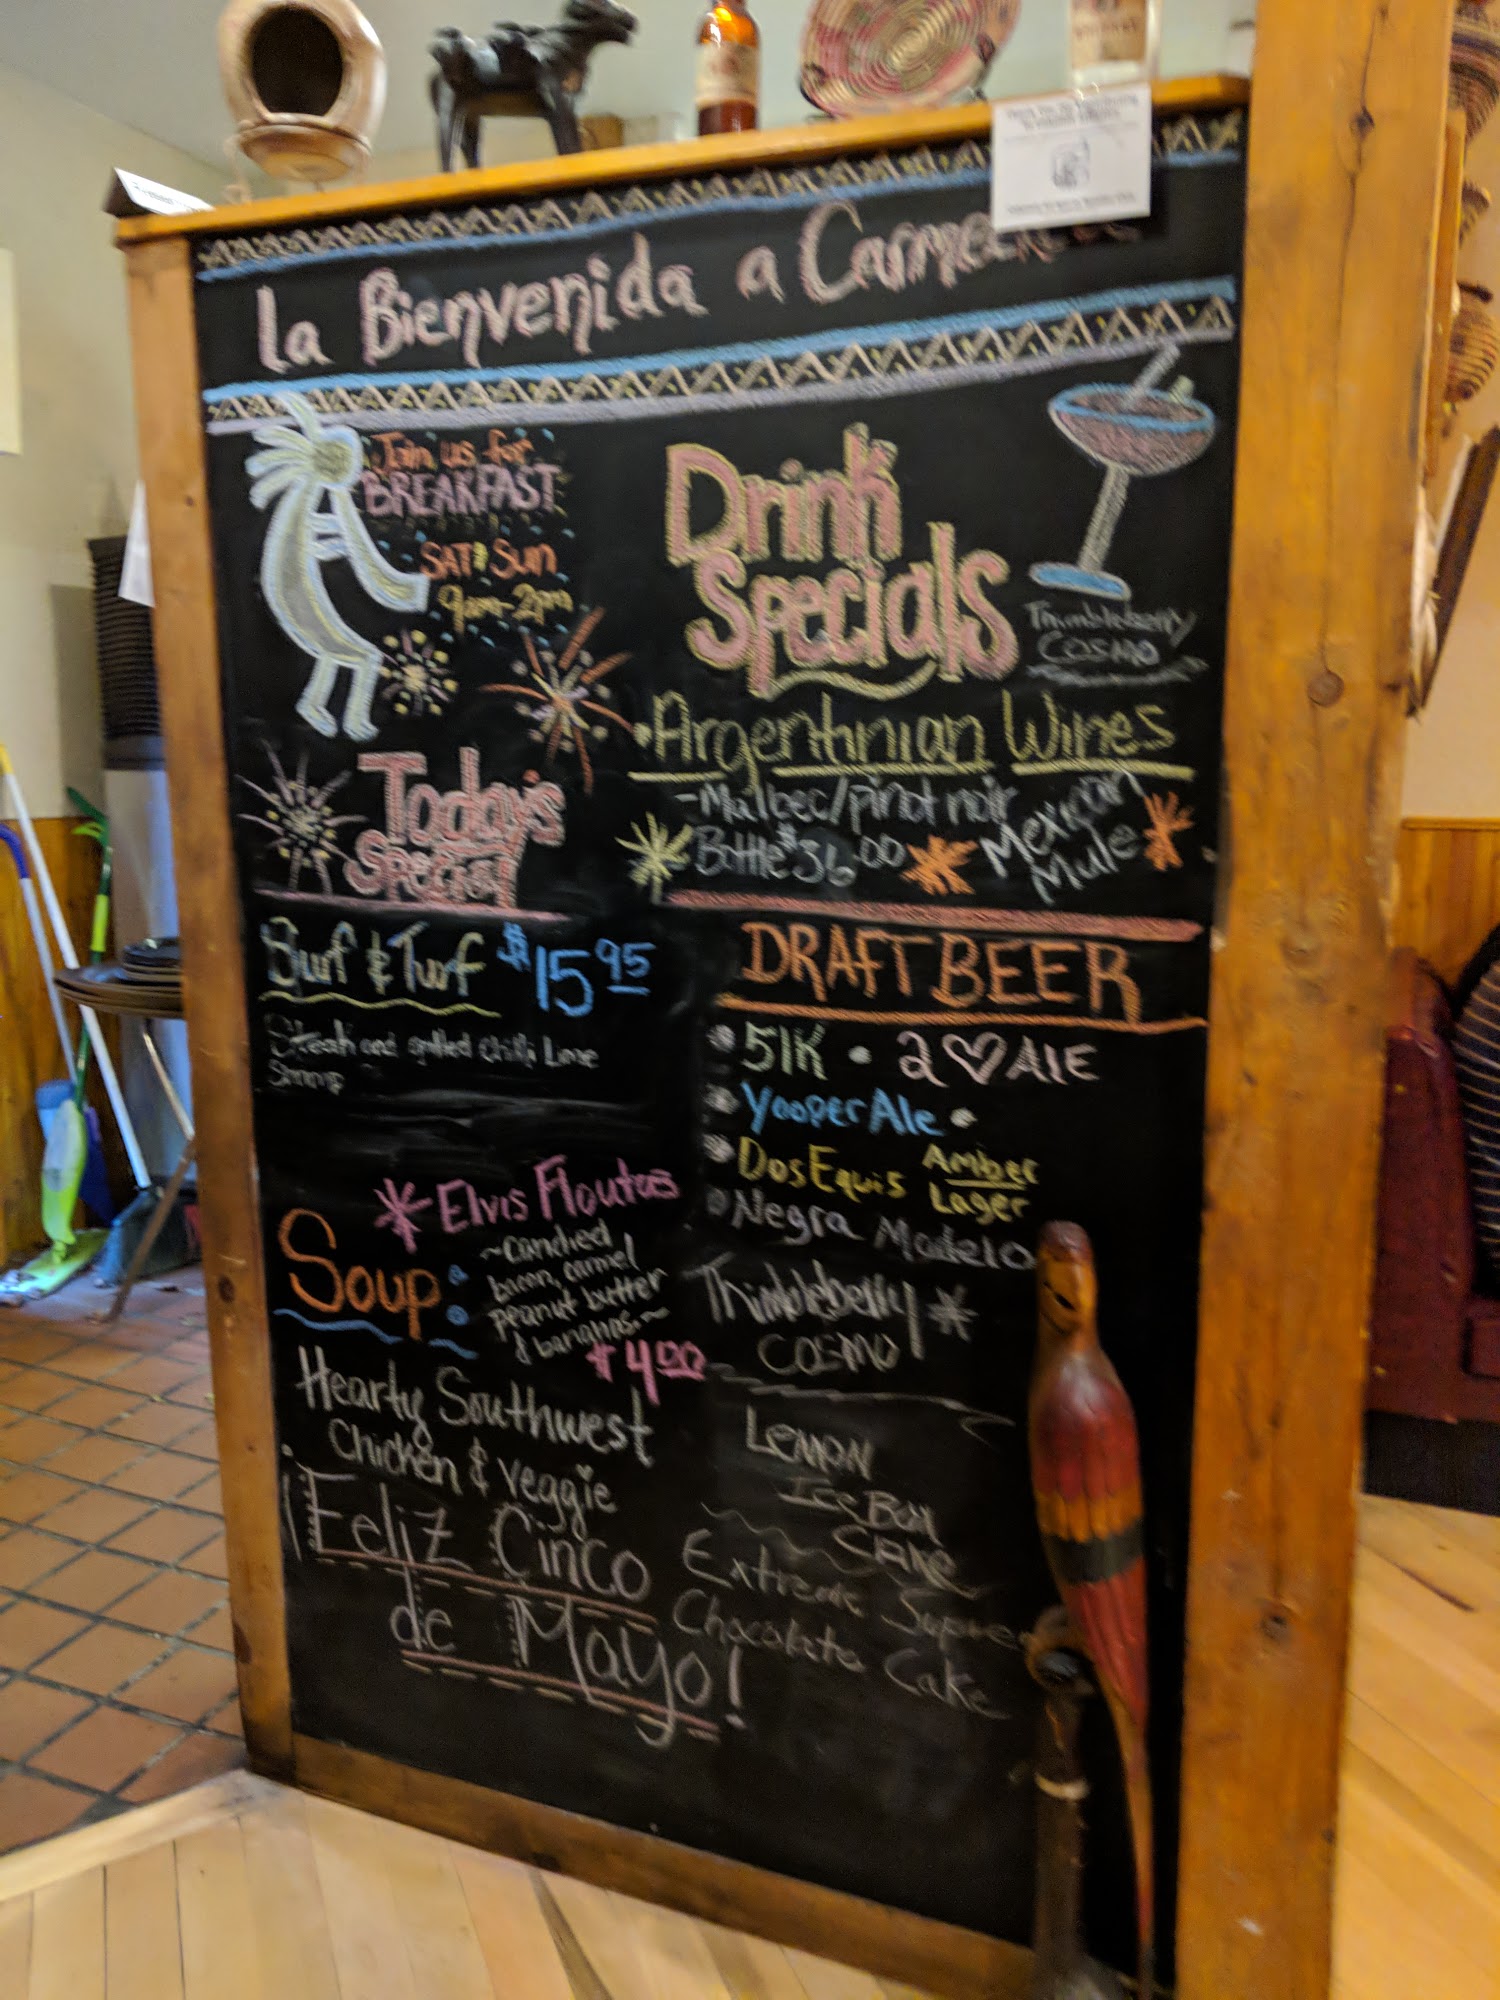 La Bienvenida a
Join us for
BREAKFAST
SAT & Sun
9am-2pm
Drink
Specials
Thimbleberry
COSMO
Argentinian Wines
-Malbec/pinot noir
Bottle $36.00
Mexican
Mule
Today's
Special
Surf & Turf $15.95
Steak and grilled Chili Lime
Shrimp
DRAFT BEER
51K • 2♡ALE
Yooper Ale •
Dos Equis Amber
Lager
Negra Modelo
Elvis Floutas
~candied
bacon, carmel
peanut butter
& bananas.~
$4.00
Soup:
Hearty Southwest
Chicken & veggie
Thimbleberry
COSMO
LEMON
Ice Box
CAKE
Extreme
Chocolate Cake
¡Feliz Cinco
de Mayo!